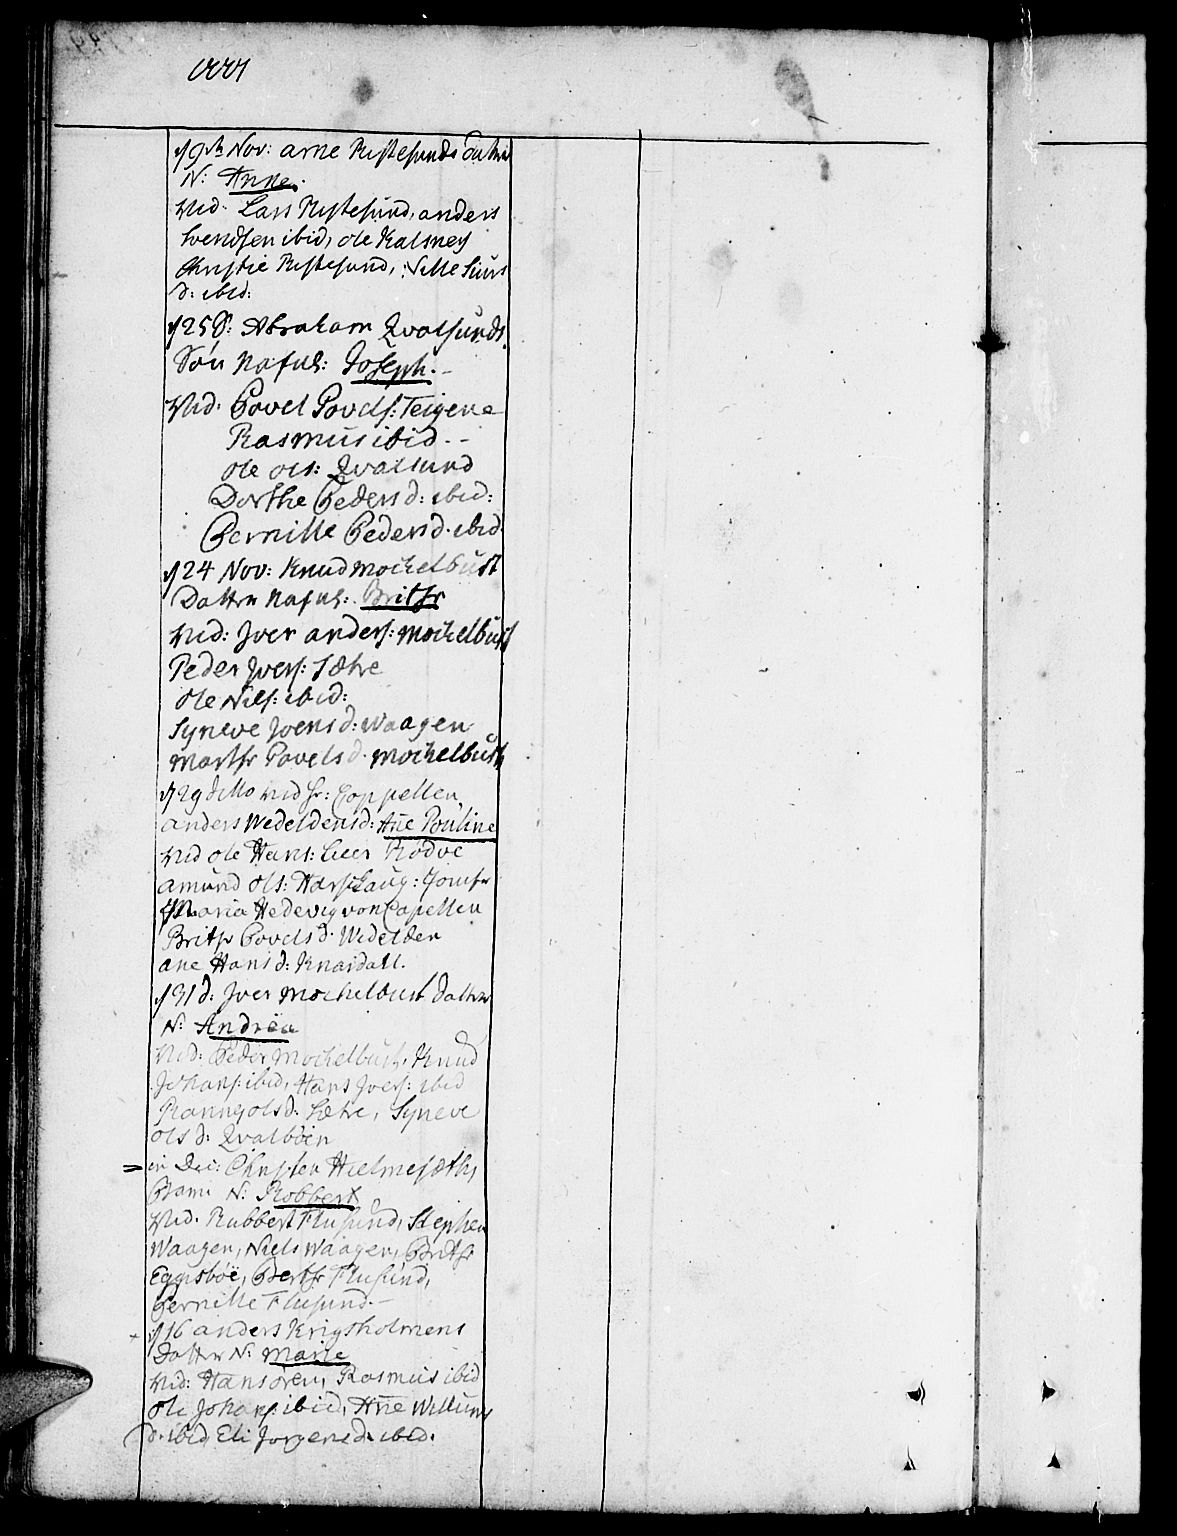 d 19de Nov: arne Rystesunds datter
N: Anne.
Vid. Lars Rystesund, anders
Svendsen ibid, ole Kalsnes
Christie Rystesund, Sille Siurs
d: ibid:
d 25 d: Abraham Qvalsunds
Søn Nafnl: Joseph. -
Vid. Povel Povels: Teigene
Rasmus ibid. -
ole ols: Qvalsund
Dorthe Peders d: ibid:
Pernille Peders d. ibid
d 24 Nov: Knud Mochelbust
Datter Nafnl: Brithe
Vid: Iver anders: Mochelbust
Peder Ivers: Sætre
ole Nils: ibid:
Syneve Joens d: Waagen
Marthe Povels d. Mochelbust
d 29 ditto ved hr: Coppellen
anders Wedeldens d: Añe Pouline
Vid ole Hans: Leer Rødve
amund ols: Haug: Jomfr
Maria Hedevig von Capellen
Brithe Povels d. Wedelden
ane Hans d: Knardall.
d 31 d: Iver Mochelbust datter
N: Andrea
Vid: Peder Mochelbust, Knud
Johans: ibid, Hans Ivers: ibid
Ranney ols d. Sætre, Syneve
ols d: Qvalbøen
= in Dec: Christen Hielmesæths
Barn N: Robbert
Vid. Rubbert Flusund, Stephen
Waagen, Niels Waagen, Brithe
Eggesbøe, Berthe Flusund,
Pernille Flusund. -
d 16 anders Krigsholmens
Datter N: Marie
Vid: Hans ibid, Rasmus ibid
ole Johans: ibid, Añe Willums
d. ibid Eli Jørgens d. ibid.